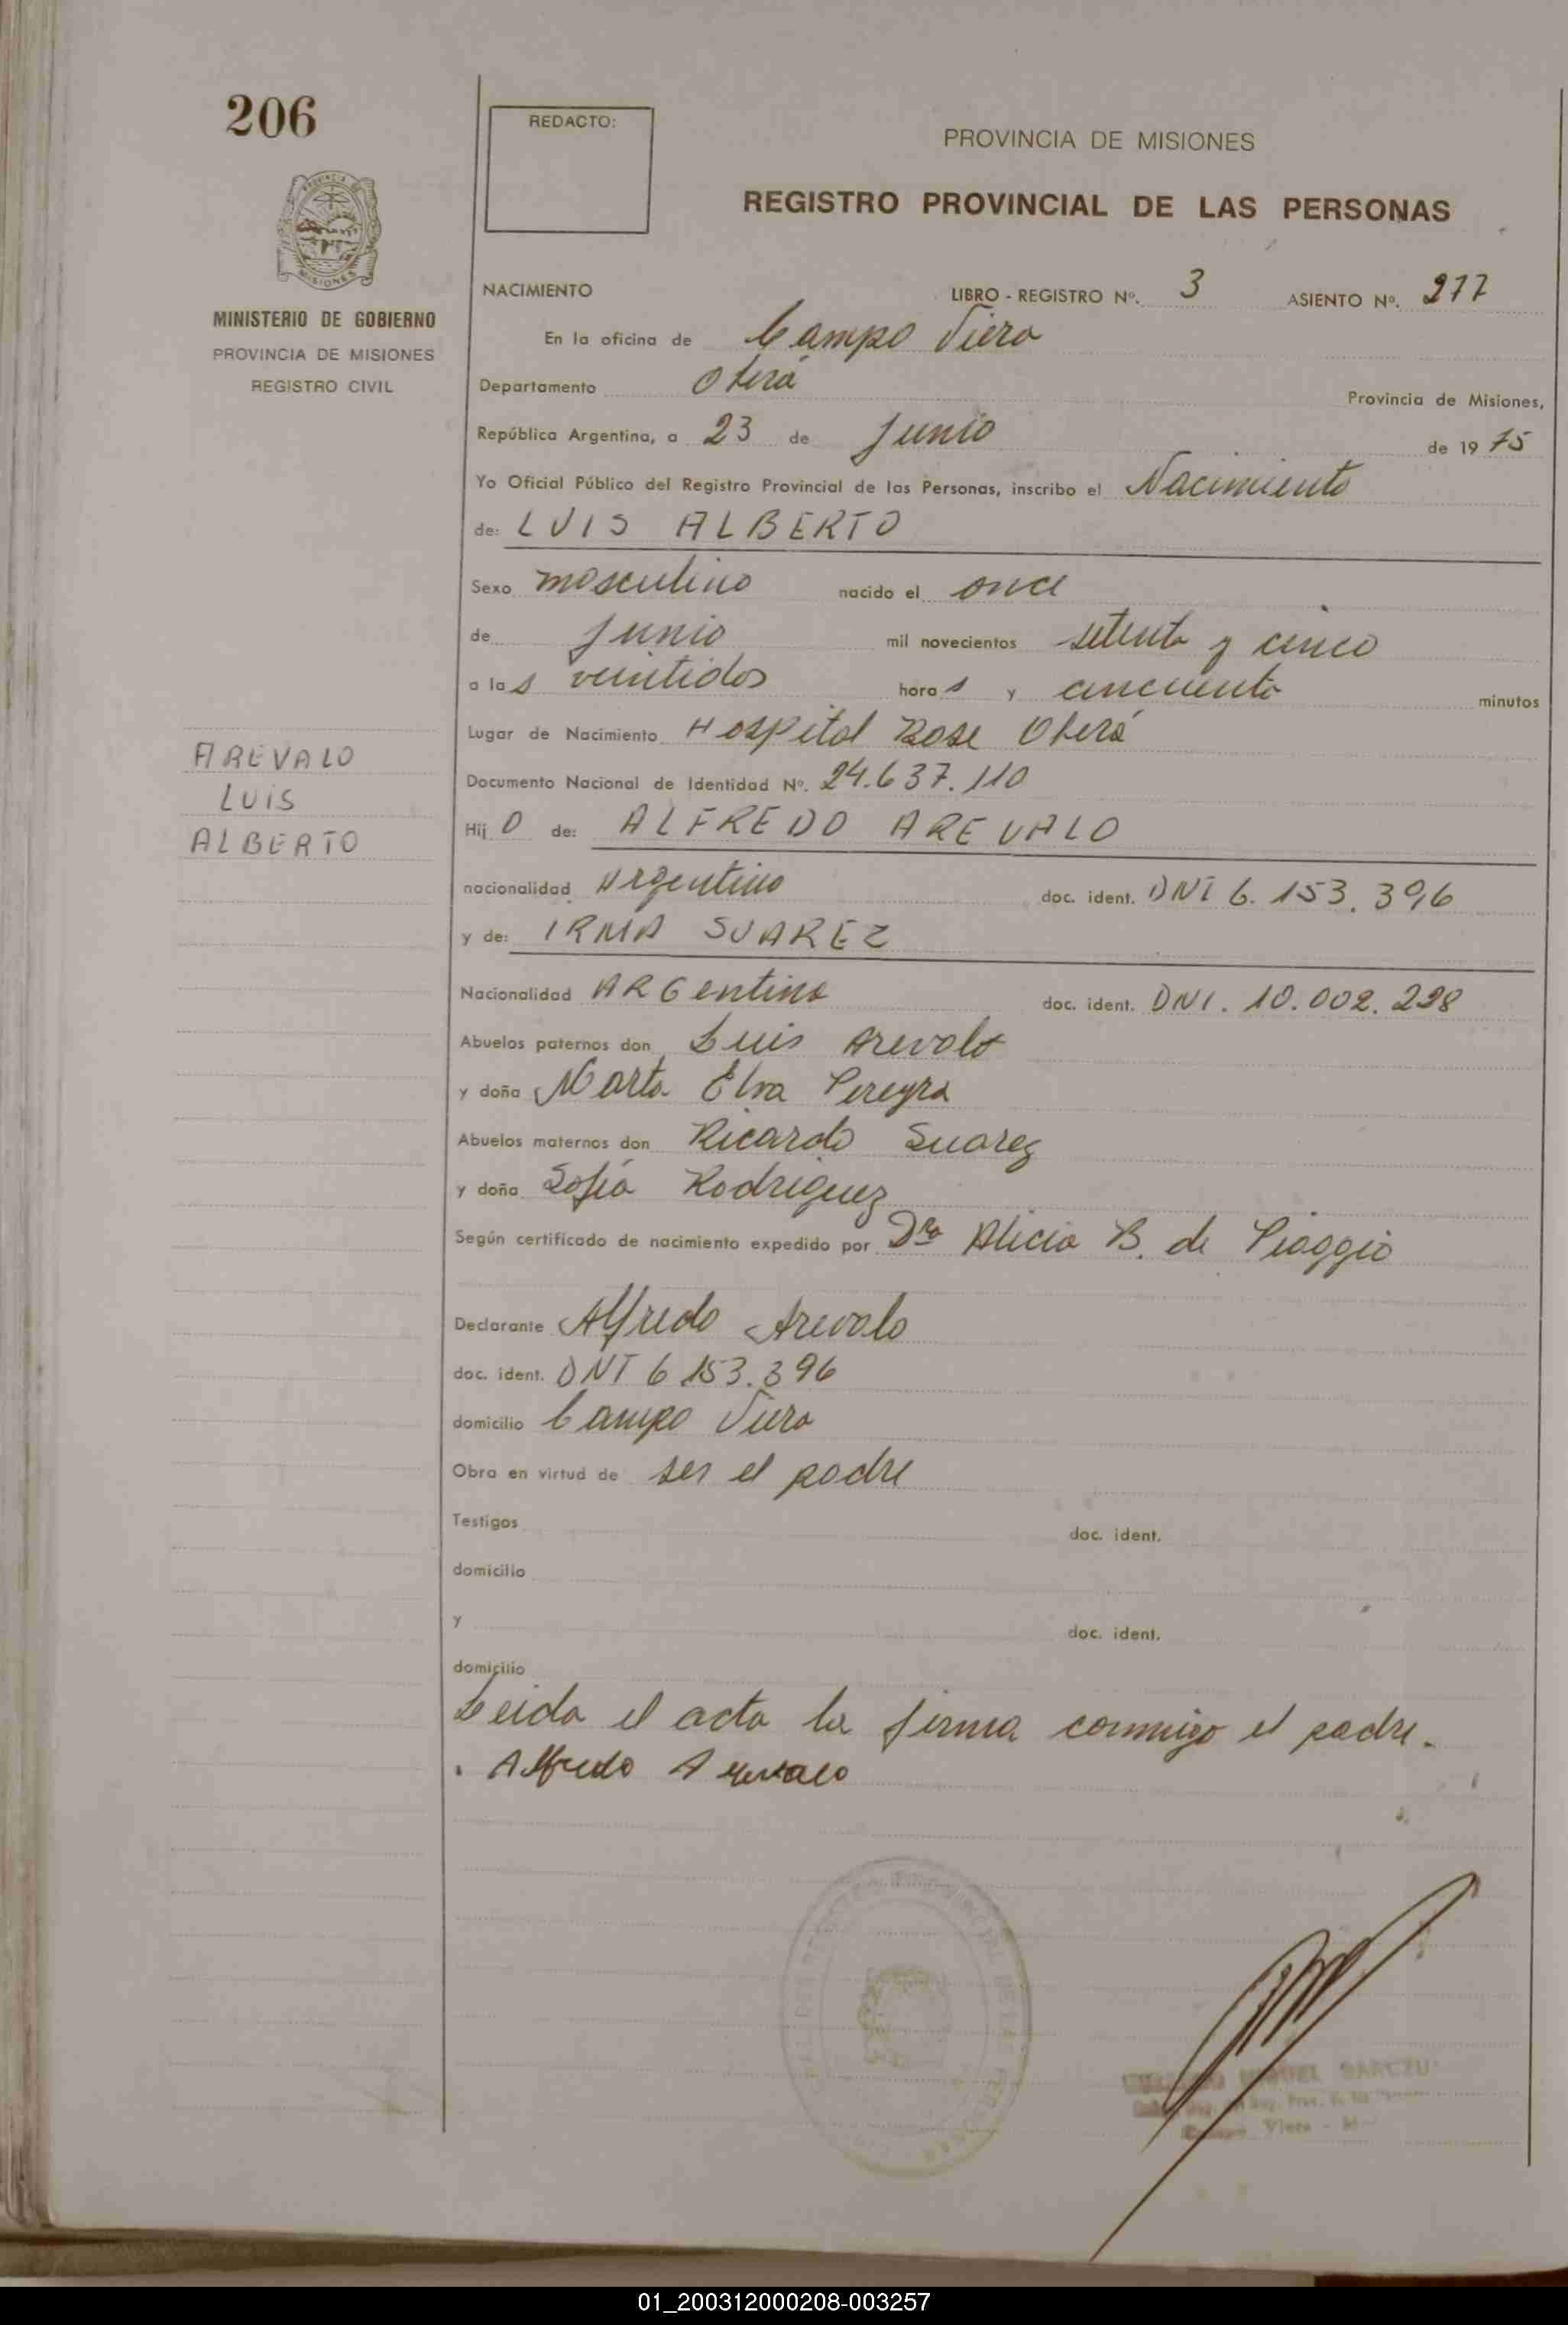 206
REDACTO:
PROVINCIA DE MISIONES
REGISTRO PROVINCIAL DE LAS PERSONAS
MISIONES
MINISTERIO DE GOBIERNO
PROVINCIA DE MISIONES
REGISTRO CIVIL
NACIMIENTO LIBRO - REGISTRO Nº. 3 ASIENTO Nº. 277
En la oficina de Campo Viera
Departamento Oberá Provincia de Misiones,
República Argentina, a 23 de Junio de 1975
Yo Oficial Público del Registro Provincial de las Personas, inscribo el Nacimiento
de: LUIS ALBERTO
Sexo masculino nacido el once
de Junio mil novecientos setenta y cinco
a las veintidos horas y cincuenta minutos
Lugar de Nacimiento Hospital Base Oberá
AREVALO
LUIS
ALBERTO
Documento Nacional de Identidad Nº. 24.637.110
Hijo de: ALFREDO AREVALO
nacionalidad Argentino doc. ident. DNI 6.153.396
y de: IRMA SUAREZ
Nacionalidad ARGentina doc. ident. DNI. 10.002.228
Abuelos paternos don Luis Arevalo
y doña Marta Elva Pereyra
Abuelos maternos don Ricardo Suarez
y doña Sofía Rodriguez
Según certificado de nacimiento expedido por Dra Alicia B. de Piaggio
Declarante Alfredo Arevalo
doc. ident. DNI 6 153.396
domicilio Campo Viera
Obra en virtud de ser el padre
Testigos doc. ident.
domicilio
y doc. ident.
domicilio
Leida el acta la firma conmigo el padre.
Alfredo Arevalo
MIGUEL
Viera
01_200312000208-003257